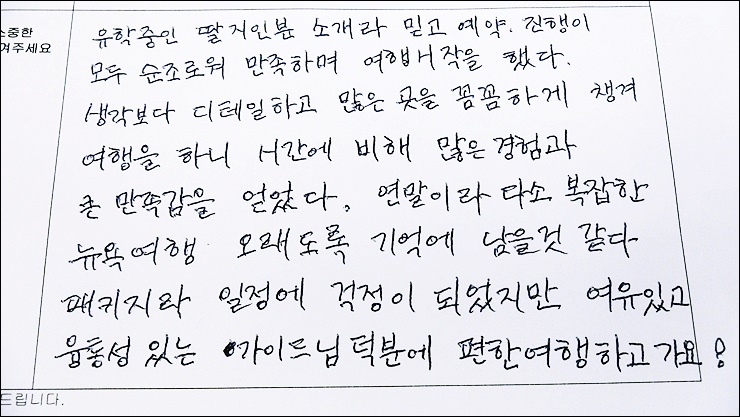 소중한
겨주세요
유학중인 딸 지인분 소개라 믿고 예약. 진행이
모두 순조로워 만족하며 여행시작을 했다.
생각보다 디테일하고 많은 곳을 꼼꼼하게 챙겨
여행을 하니 시간에 비해 많은 경험과
큰 만족감을 얻었다. 연말이라 다소 복잡한
뉴욕여행 오래도록 기억에 남을것 같다
패키지라 일정에 걱정이 되었지만 여유있고
융통성 있는 가이드님 덕분에 편한여행하고가요!
드립니다.